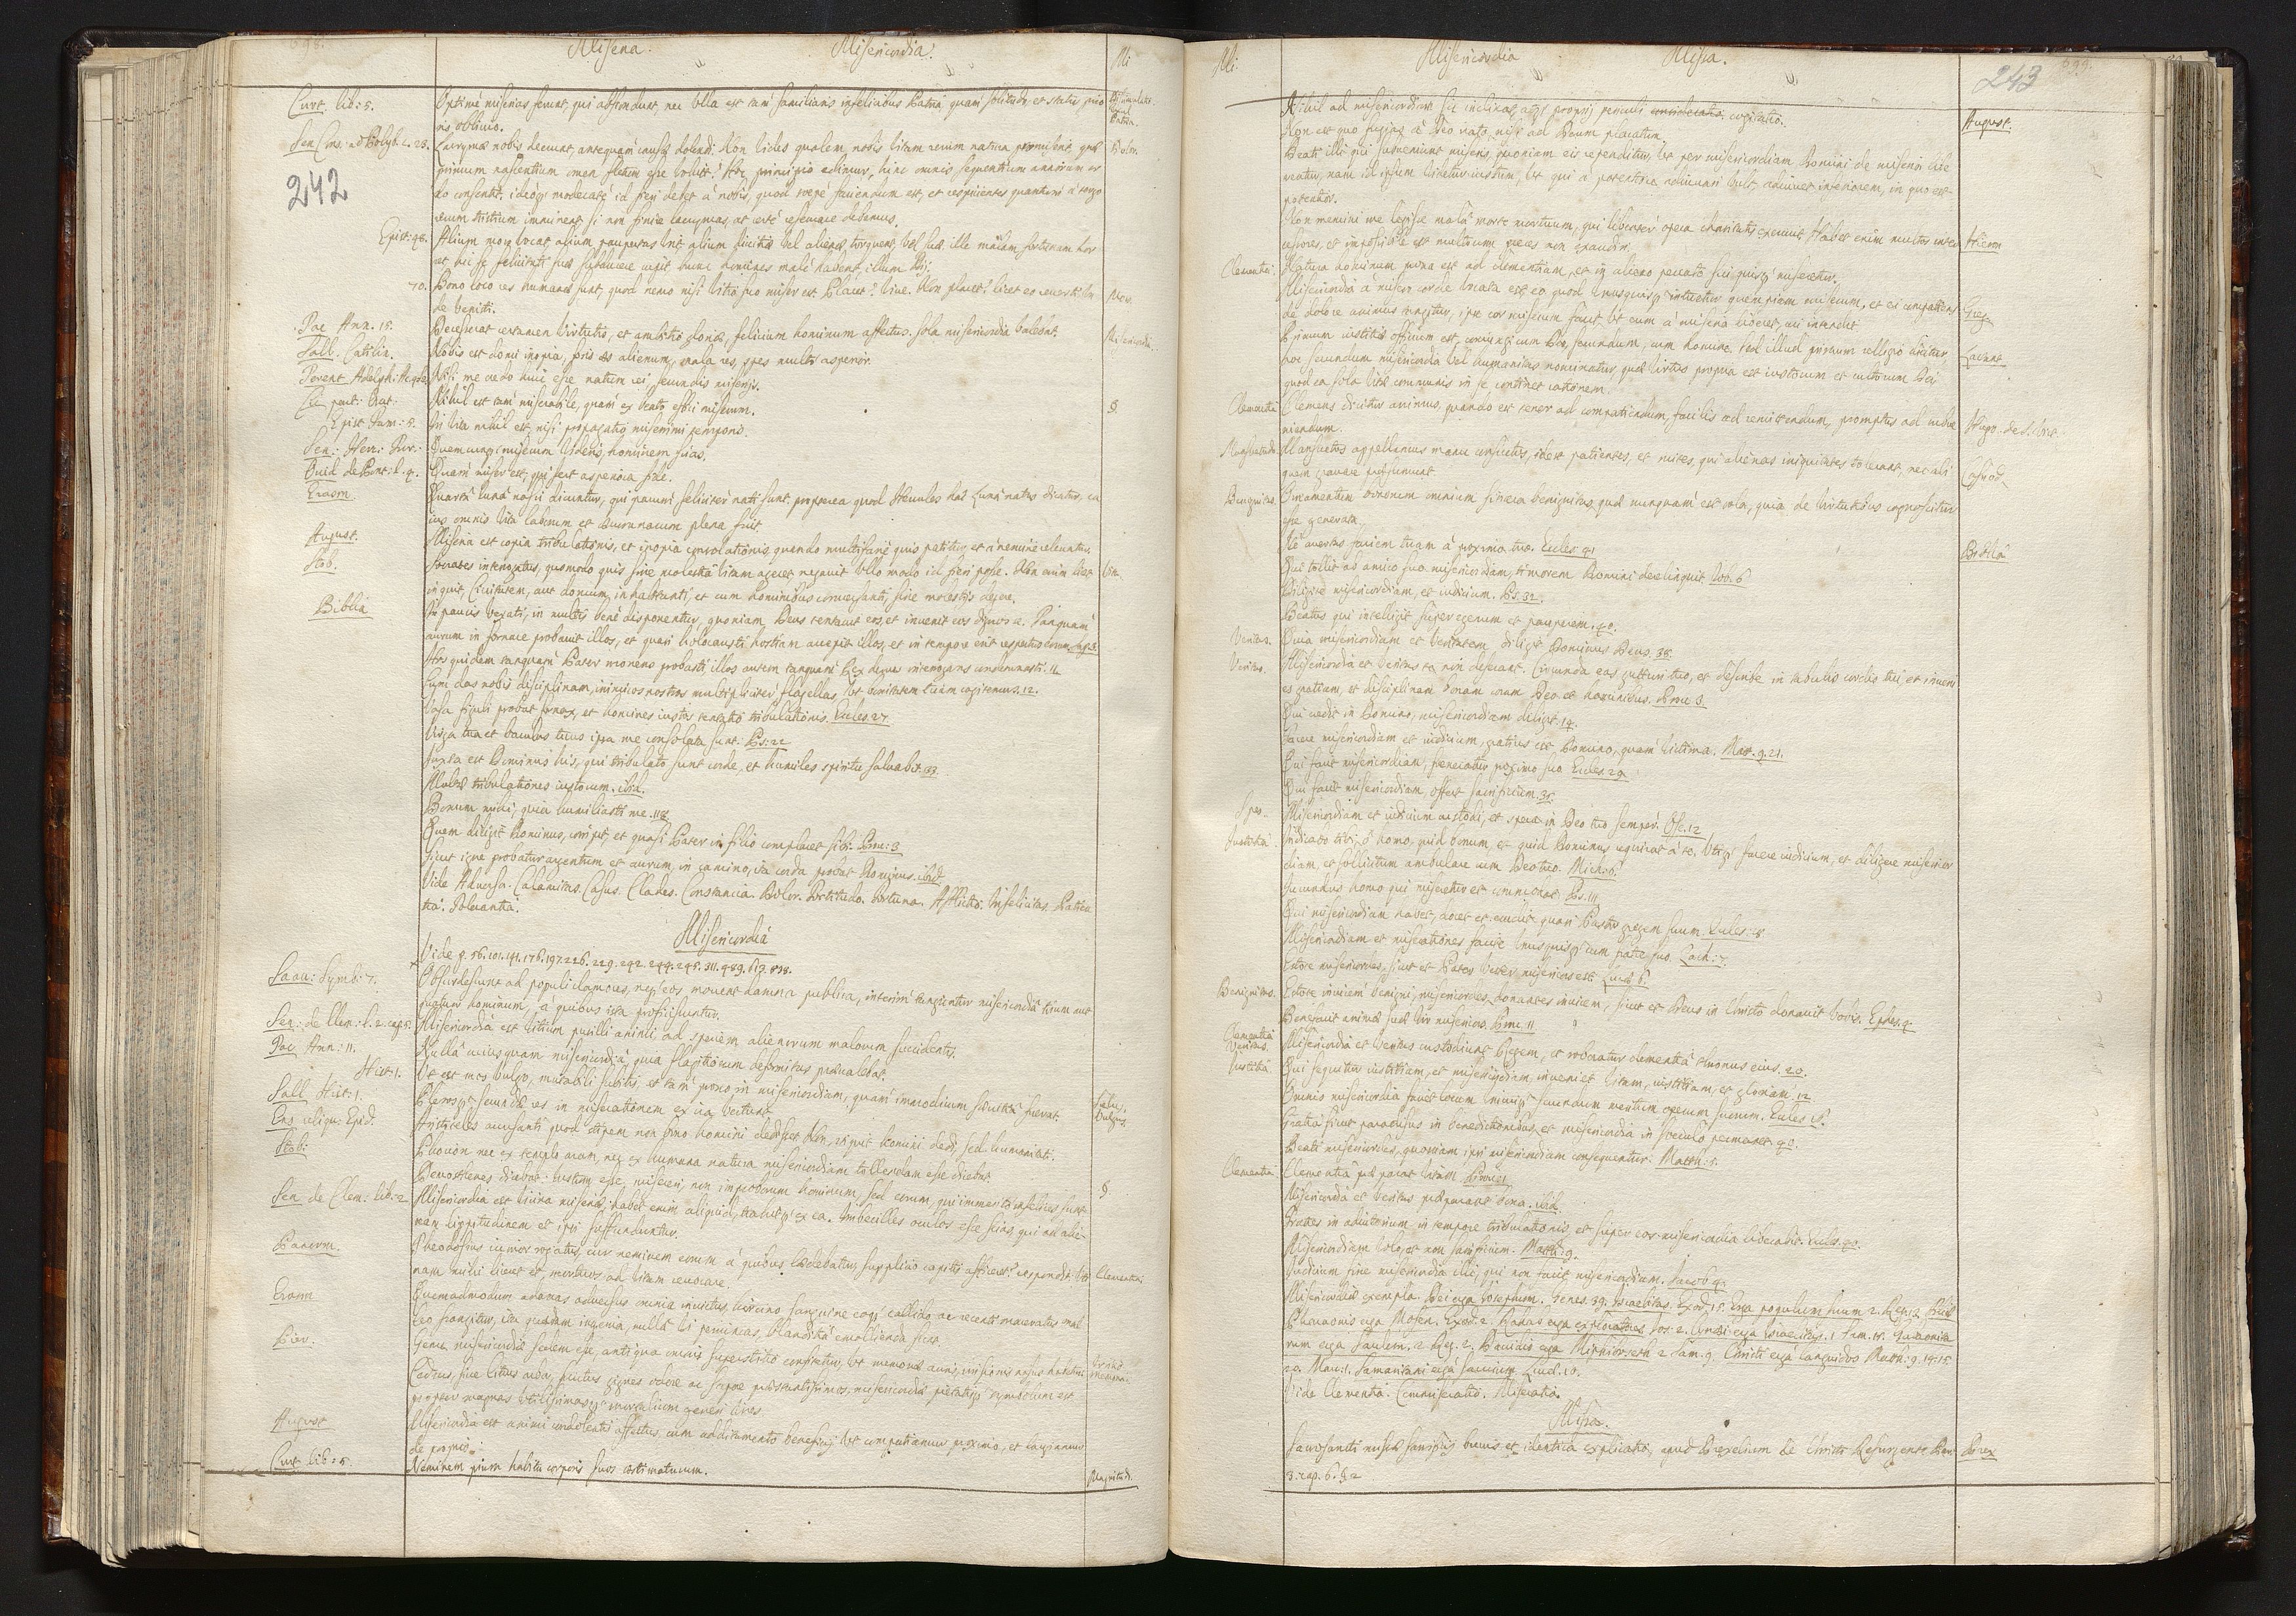 698.
Miseria. Misericordia. Mi
242
Curt. lib: 5. Optimè miserias ferunt, qui abscondunt, nec ulla est tam familiaris infelicibus Patria, quam solitudo, et status prio
ris oblivio. Patria.
Sen. Cons: ad Polyb. c. 23. Lacrymae nobis deerunt, antequam causae dolendi. Non vides qualem nobis vitam rerum natura promiserit, quae Dolor.
primum nascentium omen fletum esse voluit? Hoc principio edimur, huic omnis sequentium annorum or
do consentit, ideoq; moderatè id fieri debet à nobis, quod saepè faciendum est, et respicientes quantum à tergo
rerum tristium immineat si non finire lacrymas, at certè reservare debemus.
Epist: 98. Alium mors vocat, alium paupertas urit, alium divitiae vel alienae torquent, vel suae, ille malam fortunam hor
ret, hic se felicitati suae subducere cupit, hunc homines malè habent, illum Dij.
70. Bono loco res humanae sunt, quod nemo nisi vitio suo miser est. Placet? vive. Non placet? licet eo reverti un Mors.
de venisti.
Tac. Ann. 15. Decesserat certamen virtutis, et ambitio gloriae, felicium hominum affectus. sola misericordia valebat. Misericordia.
Sall. Catilin. Nobis est domi inopia, foris aes alienum, mala res, spes multò asperior.
Terent. Adelph: Nisi me credo huic esse natum rei ferundis miserijs.
Cic. part: Orat: Nihil est tam miserabile, quam ex beato effici miserum. §.
Epist. Fam: 5. In vita nihil est, nisi propagatio miserrimi temporis.
Sen: Herc: Fur: Quemcunq; miserum videris, hominem scias.
Ovid. de Pont: l. 4. Quam miser est, qui fert asperiora fide.
Erasm. Quartâ lunâ nati dicuntur, qui parum feliciter nati sunt, propterea quod Hercules hac Luna natus dicatur, cu
ius omnis vita laborum et aerumnarum plena fuit.
August. Miseria est copia tribulationis, et inopia consolationis quando multifariè quis patitur, et à nemine relevatur.
Stob. Socrates interrogatus, quomodo quis sine molestia vitam ageret negavit ullo modo id fieri posse. Non enim licet
inquit, Civitatem, aut domum inhabitanti, et cum hominibus conversanti, sine moestitia degere.
Biblia In paucis vexati, in multis benè disponentur, quoniam Deus tentavit eos, et invenit eos dignos se. Tanquam
aurum in fornace probavit illos, et quasi holocausti hostiam accepit illos, et in tempore erit respectus eorum. Sap. 3.
Hos quidem tanquam Pater monens probasti, illos autem tanquam Rex durus interrogans condemnasti. 11.
Cum das nobis disciplinam, inimicos nostros multipliciter flagellas, ut bonitatem tuam cogitemus. 12.
Vasa figuli probat fornax, et homines iustos tentatio tribulationis. Eccles. 27.
Virga tua et baculus tuus ipsa me consolata sunt. Ps: 22.
Iuxta est Dominus his, qui tribulato sunt corde, et humiles spiritu salvabit. 33.
Multae tribulationes iustorum. ibid.
Bonum mihi, quia humiliasti me. 118.
Quem diligit Dominus, corripit, et quasi Pater in filio complacet sibi. Prov: 3.
Sicut igne probatur argentum et aurum in camino, ita corda probat Dominus. ibid.
Vide Adversa. Calamitas. Casus. Clades. Constantia. Dolor. Fortitudo. Fortuna. Afflictio. Infelicitas. Patien
tia. Tolerantia.
Misericordia
Vide p. 56. 101. 141. 176. 197. 226. 229. 242. 244. 245. 311. 489. 619. 838.
Saav: Symb: 7. Obsurdescunt ad populi clamores, neq; eos movent damna publica, interim tanguntur misericordia trium aut
quatuor hominum, à quibus ista proficiscuntur.
Sen: de Clem: l. 2. cap 5. Misericordia est vitium pusilli animi, ad speciem alienorum malorum succidentis.
Tac. Ann: 11. Nulla cuiusquam misericordia quia flagitiorum deformitas praevalebat.
Hist: 1. Ut est mos vulgo, mutabili subitis, et tam prono in misericordiam, quam immodicum saevitia fuerat. Vulgus.
Sall. Hist: 1. Plerosq; secundae res in miserationem ex ira vertunt.
Aristoteles accusanti quod stipem non bono homini dedisset Non, inquit homini dedi, sed humanitati.
Stob: Phocion nec ex templo aram, neq; ex humana natura misericordiam tollendam esse dicebat.
Demosthenes dicebat: Iustum esse, misereri non improborum hominum, sed eorum, qui immeritò infelices sunt. §
Sen. de Clem: lib: 2. Misericordia est vicina miseriae, habet enim aliquid, trahitq; ex ea. Imbecilles oculos esse scias, qui ad alie
nam lippitudinem et ipsi suffunduntur.
Panorm. Theodosius iunior rogatus, cur neminem eorum à quibus laedebatur supplicio capitis afficeret? respondit: Uti Clementia
nam mihi liceret et mortuos ad vitam revocare.
Erasm. Quemadmodum adamas adversus omnia invictus, hircino sanguine eoq; calido, ac recenti maceratus mal
leo frangitur, ita quaedam ingenia, nulla vi pervincas, blanditia emollienda sunt.
Pier. 
August. Misericordia est animi condolentis affectus, cum additamento beneficij, ut compatiamur proximo, et largiamur
de proprio.
Curt. lib: 5. Neminem prium habitu corporis suos aestimaturum. Magnitudo.
699.
Mi. Misericordia Missa. 243
Nihil ad misericordiam sic inclinat, atq; proprij periculi consideratio. cogitatio. August.
Non est quo fugias à Deo irato, nisi ad Deum placatum.
Beati illi qui subveniunt miseris, quoniam eis rependitur, ut per misericordiam Domini de miseria libe
rentur, nam id ipsum videtur iustum, ut qui à potentiore adiuvari vult, adiuvet inferiorem, in quo est
potentior.
Non memini me legisse mala morte mortuum, qui libenter opera charitatis exercuit, Habet enim multos inter Hieron
cessores, et impossibile est multorum preces non exaudiri.
Clementia. Natura hominum prona est ad clementiam, et in alieno peccato sui quisq; miseretur.
Misericordia à misero corde vocata est, eo quod unusquisq; intuetur quempiam miserum, et ei compatiens Greg.
dum dolore animus tangitur, ipse cor miserum facit, ut eum à miseria liberet, cui intendit.
Primum iustitiae officium est, coniungi cum Deo, secundum, cum homine. sed illud primum religio dicitur, Lactant.
hoc secundum misericordia vel humanitas nominatur, quae virtus propria est iustorum et cultorum Dei
quod ea sola vitae communis in se continet rationem.
Clementia Clemens dicitur animus, quando est tener ad compatiendum, facilis ad remittendum, promptus ad subve Hugo. de S. Vict.
niendum.
Mansuetudo Mansuetos appellamus manu consuetos, idest patientes, et mites, qui alienas iniquitates tolerant, nec ali Cassiod.
quem gravare praesumunt.
Benignitas. Ornamentum bonorum omnium sincera benignitas, quae nunquam est sola, quia de virtutibus cognoscitur
esse generata.
Ne avertas faciem tuam à proximo tuo. Eccles. 41. Biblia
Qui tollit ab amico suo misericordiam, timorem Domini derelinquit. Iob. 6
Diligite misericordiam, et iudicium. Ps. 32.
Beatus qui intelligit super egenum et pauperem. 40.
Veritas. Quia misericordiam et veritatem diligit Dominus Deus. 38.
Veritas. Misericordia et veritas te non deserant. Circunda eas gutturi tuo, et describe in tabulis cordis tui, et inveni
es gratiam, et disciplinam bonam coram Deo et hominibus. Prov. 3.
Qui credit in Domino, misericordiam diligit. 14.
Facere misericordiam et iudicium, gratius est Domino, quam victima. Matt. 9. 21.
Qui facit misericordiam, feneratur proximo suo. Eccles. 29.
Qui facit misericordiam, offert sacrificium. 35.
Spes. Misericordiam et iudicium custodi, et spera in Deo tuo semper. Ose. 12.
Iustitia. Indicabo tibi, ô homo, quid bonum, et quid Dominus requirat à te, Utiq; facere iudicium, et diligere misericor
diam, et sollicitum ambulare cum Deo tuo. Mich: 6.
Iucundus homo qui miseretur et commodat. Ps. 111.
Qui misericordiam habet, docet et erudit quasi Pastor gregem suum. Eccles: 18.
Misericordiam et miserationes facite unusquisq; cum fratre suo. Zach: 7.
Estote misericordes, sicut et Pater vester misericors est. Luc. 6.
Benignitas. Estote invicem benigni, misericordes, donantes invicem, sicut et Deus in Christo donavit vobis. Ephes. 4.
Benefacit animae suae vir misericors. Prov. 11
Clementia Veritas. Misericordia et Veritas custodiunt Regem, et roboratur clementia thronus eius. 20.
Iustitia. Qui sequitur iustitiam, et misericordiam, inveniet vitam, iustitiam, et gloriam. 12
Omnis misericordia faciet locum unicuiq; secundum meritum operum suorum. Eccles. 16.
Gratia sicut paradisus in benedictionibus, et misericordia in saeculo permanet. 40.
Beati misericordes, quoniam ipsi misericordiam consequentur. Matth: 5.
Clementia. Clementia praeparat vitam. Prov: 11
Misericordia et Veritas praeparant bona. ibid.
Fratres in adiutorium in tempore tribulationis, et super eos misericordia liberabit. Eccles. 40.
Misericordiam volo, et non sacrificium. Matth: 9.
Iudicium sine misericordia illi, qui non facit misericordiam. Iacob. 2.
Misericordiae exempla. Dei erga Iosephum. Genes. 39. Israelitas. Exod. 15. Erga populum suum 2. Reg: 13. Filiae
Pharaonis erga Mosen. Exod. 2. Rahab erga exploratores. Ios. 2. Cinaei erga Israelitas. 1 Sam. 15.
rum erga Saulem. 2 Reg. 2. Davidis erga Miphiboseth 2 Sam. 9. Christi erga languidos Matth. 9. 14. 15.
20. Marc. 1. Samaritani erga saucium. Luc. 10.
Vide Clementia. Commiseratio. Miseratio.
Missa.
Sacrosancti missae sacrificij brevis et identica explicatio, apud Drexelium de Christo Resurgente. Par: Drex
3. cap. 6. § 2